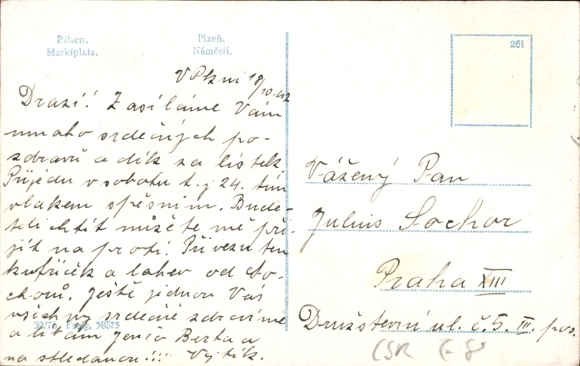 Pilsen.
Marktplatz.
Plzeň.
Náměstí.
261
V Plzni 19/10.42
Drazí! Zasíláme Vám
mnoho srdečných po-
zdravů a dík za lístek
Přijedu v sobotu t.j 24. tím
vlakem spěšním. Bude-
te li chtít můžete mě při-
jít na proti. Přivezu ten
kufříček a lahev od So-
chorů. Ještě jednou Vás
všichny srdečně zdravíme
a líbám Jenčo Berta a
na shledanou!!! Vojtík.
Vážený Pan
Julius Sochor
Praha XIII
Družstevní ul. č. 5. III. pos.
ČSR